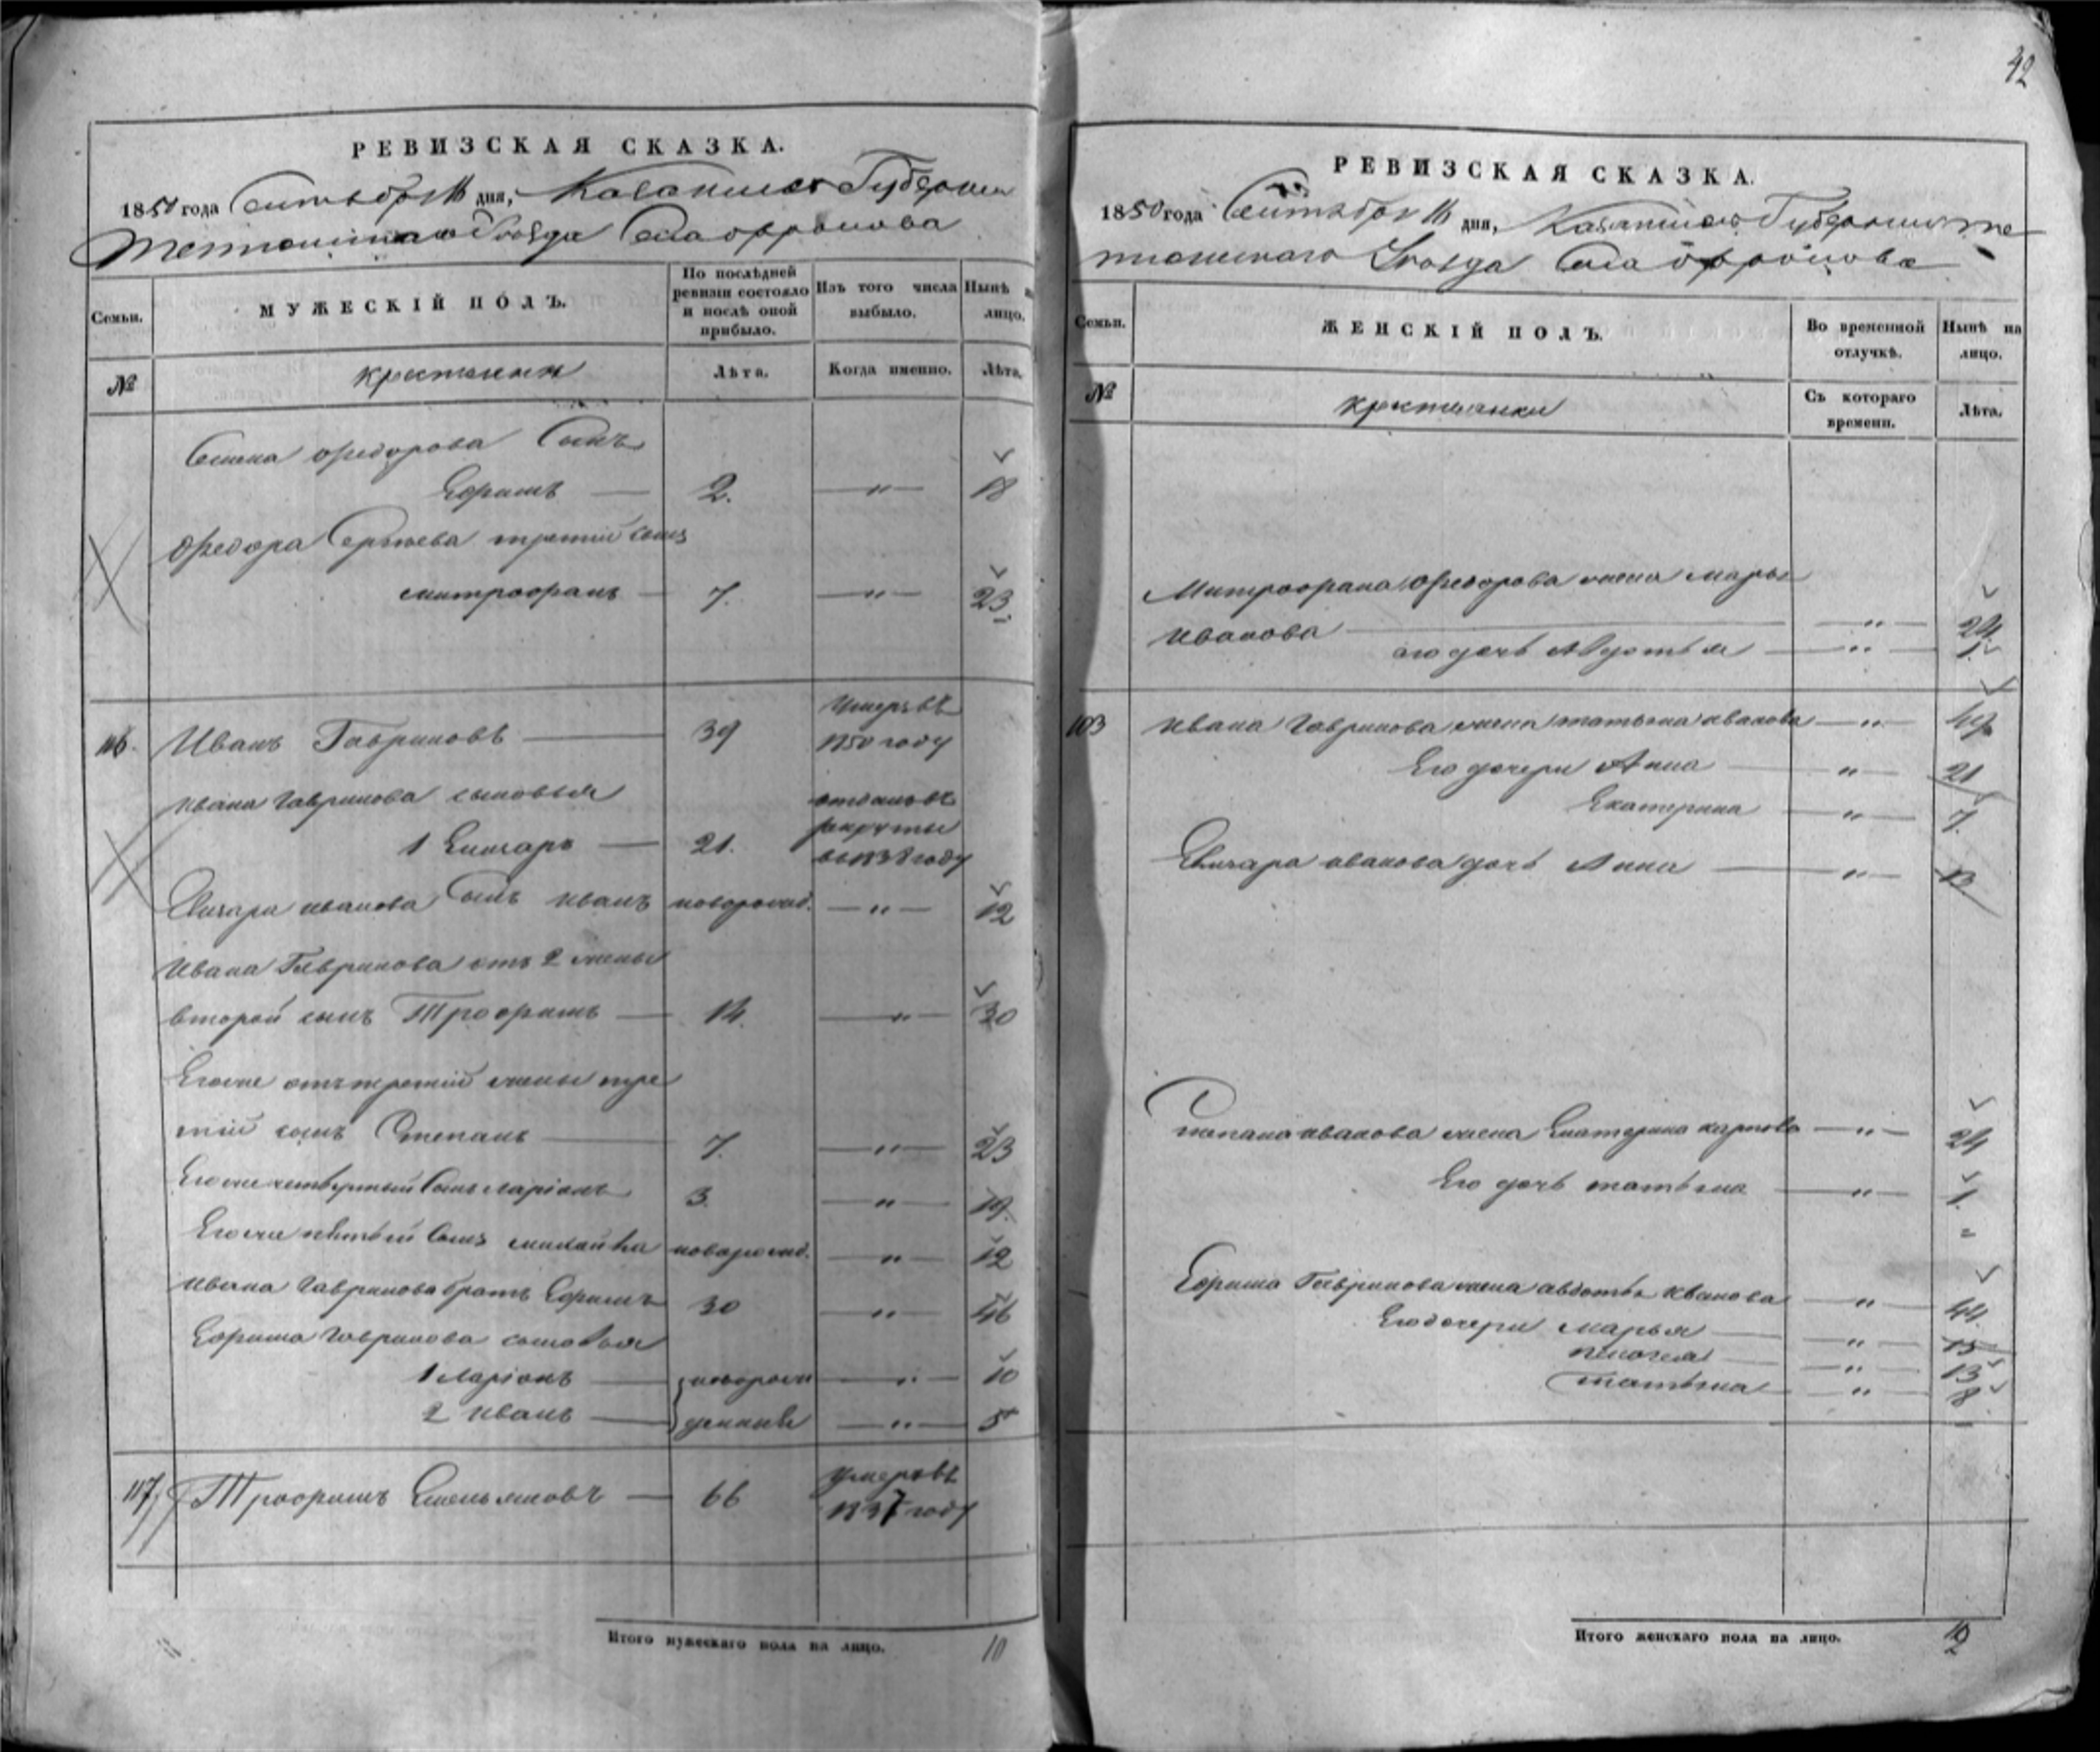 42
РЕВИЗСКАЯ СКАЗКА.
1850 года Сентября 16 дня, Казанской Губернии
Тетюшскаго Уезда Села
Семьи.
МУЖЕСКІЙ ПОЛЪ.
По послѣдней ревизіи состояло и послѣ оной прибыло.
Изъ того числа выбыло.
Нынѣ на лицо.
№
крестьяни
Лѣта.
Когда именно.
Лѣта.
Семена Федорова Сынъ
Ефимъ 2. 18
Федора Сергѣева третій сынъ
митрофанъ 7. 23
116. Иванъ Гавриловъ 39 умеръ въ
1850 году
Ивана Гаврилова сыновья отданъ въ
1 Елизаръ 21. рекруты
въ 1838 году
Елизара иванова сынъ иванъ новорожд. 12
Ивана Гаврилова отъ 2 жены
второй сынъ Трофимъ 14. 30
Егоже отъ третій жены тре
тій сынъ Степанъ 7. 23
Егоже четвертый Сынъ ларіонъ 3. 19
Егоже пятый Сынъ михайла новорожд. 12
Ивана Гаврилова братъ Ефимъ 30 46
Ефима Гаврилова сыновья
1 ларіонъ новорож 10
2 иванъ денныи 5
117 Трофимъ Емельяновъ 66 умеръ въ
1837 году
Итого мужескаго пола на лицо. 10
РЕВИЗСКАЯ СКАЗКА.
1850 года Сентября 16 дня, Казанской Губернии Те
тюшскаго Уезда Села
Семьи.
ЖЕНСКІЙ ПОЛЪ.
Во временной отлучкѣ.
Нынѣ на лицо.
№
крестьянки
Съ котораго времени.
Лѣта.
Митрофана Федорова жена марья
иванова 24
его дочь Авдотья 1
103 Ивана Гаврилова жена татьяна иванова
Его дочери Анна 21
Екатерина 7.
Елизара иванова дочь Анна 13
Степана иванова жена Екатерина карпова 24
Его дочь татьяна 1
Ефима Гаврилова жена авдотья Иванова 44
Его дочери марья 15
пелагея 13
татьяна 8
Итого женскаго пола на лицо.